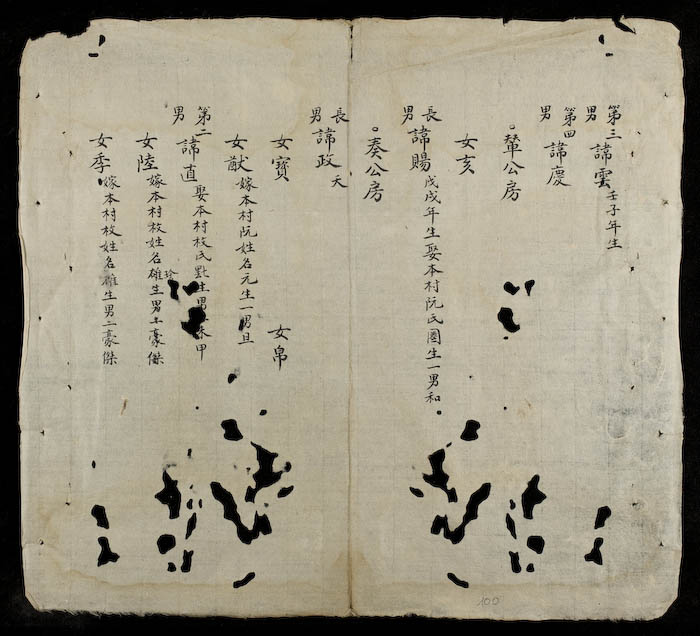 第三男諱雲壬子年生
第四男諱慶
。輦公房
女亥
長男諱賜戊戌年生娶本村阮氏圈生一男和
。奏公房
長男諱政夭
女寶 女帛
女猷嫁本村阮姓名元生一男旦
第二男諱直娶本村枚氏點生男二 甲
女陸嫁本村枚姓名雄生男 豪傑
女季嫁本村枚姓名雄生男二豪傑
100